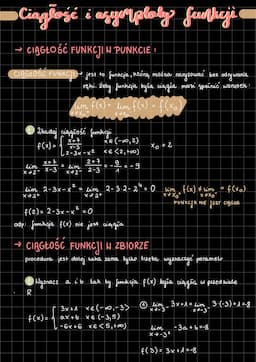 Ciągłość i asymptoty funkcji
→ CIĄGŁOŚĆ FUNKCJI W PUNKCIE:
CIĄGŁOŚĆ FUNKCJI → jest to funkcja, którą można narysować bez odrywania
ręki. Żeby funkcja była ciągła musi spełnić warunek:
lim x→x₀⁻ f(x) = lim x→x₀⁺ f(x) = f(x₀)
① Zbadaj ciągłość funkcji
f(x) = { x+7 / x-3 x∈(-∞,2)
2-3x-x² x∈<2,+∞) x₀ = 2
lim x→2⁻ x+7 / x-3 = lim x→2⁻ 2+7 / 2-3 = 9 / -1 = -9
lim x→2⁺ 2-3x-x² = lim x→2⁺ 2-3·2-2² = 0 lim x→x₀⁻ f(x) ≠ lim x→x₀⁺ = f(x₀)
FUNKCJA NIE JEST CIĄGŁA
f(2) = 2-3x-x² = 0
odp: funkcja f(x) nie jest ciągła
→ CIĄGŁOŚĆ FUNKCJI W ZBIORZE
procedura jest dalej taka sama tylko trzeba wyznaczyć parametr
① Wyznacz a i b tak by funkcja f(x) była ciągła w przedziale
R
f(x) = { 3x+1 x∈(-∞,-3>
ax+b x∈(-3,5)
-6x+6 x∈<5,+∞)
① lim x→-3⁻ 3x+1 = lim x→-3⁻ 3·(-3)+1 = -8
lim x→-3⁺ -3a+b = -8
f(3) = 3x+1 = -8